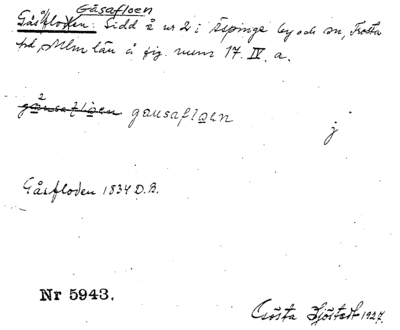 Gåsafloen
Gåsfloden. Sidd å nr 2 i Äspinge by och sn, Frosta
hd, Mlm län å fig. num 17. IV. a.
gausafloen
j
Gåsfloden 1834 D.B.
Nr 5943.
Gösta Sjöstedt 1927.